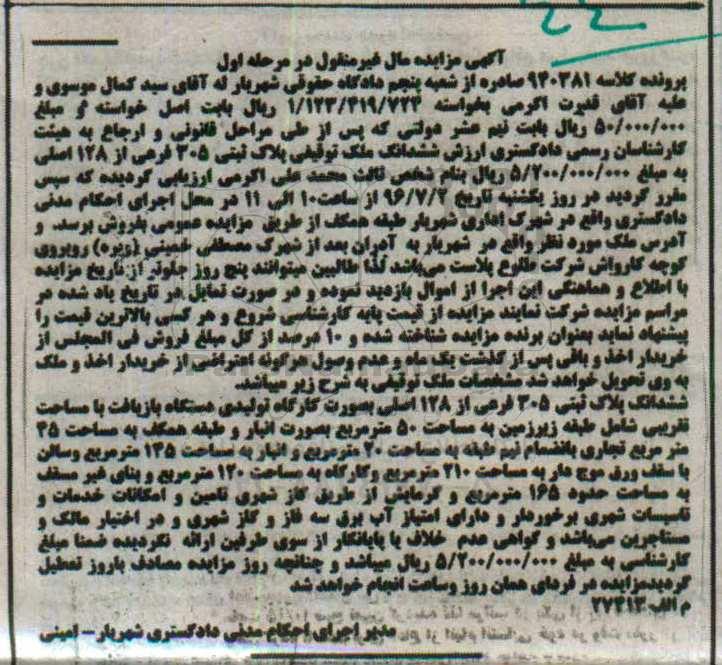 آگهی مزایده مال غیرمنقول در مرحله اول
پرونده کلاسه ۹۴۰۳۸۱ صادره از شعبه پنجم دادگاه حقوقی شهریار له آقای سید کمال موسوی و
علیه آقای قدرت اکرمی بخواسته ۱/۱۲۳/۴۱۹/۷۲۴ ریال بابت اصل خواسته و مبلغ
۵۰/۰۰۰/۰۰۰ ریال بابت نیم عشر دولتی که پس از طی مراحل قانونی و ارجاع به هیئت
کارشناسان رسمی دادگستری ارزش ششدانگ ملک توقیفی پلاک ثبتی ۳۰۵ فرعی از ۱۲۸ اصلی
به مبلغ ۵/۲۰۰/۰۰۰/۰۰۰ ریال بنام شخص ثالث محمد علی اکرمی ارزیابی گردیده که سپس
مقرر گردید در روز یکشنبه تاریخ ۹۶/۷/۲ از ساعت ۱۰ الی ۱۱ در محل اجرای احکام مدنی
دادگستری واقع در شهرک اداری شهریار طبقه همکف از طریق مزایده عمومی بفروش برسد. و
آدرس ملک مورد نظر واقع در شهریار به آدران بعد از شهرک مصطفی خمینی (ویره) روبروی
کوچه کارواش شرکت طلوع پلاست می‌باشد لذا طالبین میتوانند پنج روز جلوتر از تاریخ مزایده
با اطلاع و هماهنگی این اجرا از اموال بازدید نموده و در صورت تمایل در تاریخ یاد شده در
مراسم مزایده شرکت نمایند مزایده از قیمت پایه کارشناسی شروع و هر کسی بالاترین قیمت را
پیشنهاد نماید بعنوان برنده مزایده شناخته شده و ۱۰ درصد از کل مبلغ فروش فی المجلس از
خریدار اخذ و باقی پس از گذشت یک ماه و عدم وصول هرگونه اعتراضی از خریدار اخذ و ملک
به وی تحویل خواهد شد مشخصات ملک توقیفی به شرح زیر میباشد.
ششدانگ پلاک ثبتی ۳۰۵ فرعی از ۱۲۸ اصلی بصورت کارگاه تولیدی دستگاه بازیافت با مساحت
تقریبی شامل طبقه زیرزمین به مساحت ۵۰ مترمربع بصورت انبار و طبقه همکف به مساحت ۴۵
متر مربع تجاری بانضمام نیم طبقه به مساحت ۲۰ مترمربع و انبار به مساحت ۱۴۵ مترمربع وسالن
با سقف ورق موج دار به مساحت ۲۱۰ مترمربع وکارگاه به مساحت ۱۲۰ مترمربع و بنای غیر مسقف
به مساحت حدود ۱۶۵ مترمربع و گرمایش از طریق گاز شهری تامین و امکانات خدمات و
تاسیسات شهری برخوردار و دارای امتیاز آب برق سه فاز و گاز شهری و در اختیار مالک و
مستاجرین می‌باشد و گواهی عدم خلاف یا پایانکار از سوی طرفین ارائه نگردیده ضمنا مبلغ
کارشناسی به مبلغ ۵/۲۰۰/۰۰۰/۰۰۰ ریال میباشد و چنانچه روز مزایده مصادف باروز تعطیل
گردیدمزایده در فردای همان روز وساعت انجام خواهد شد
م الف ۲۷۴۱۳
مدیر اجرای احکام مدنی دادگستری شهریار – امینی